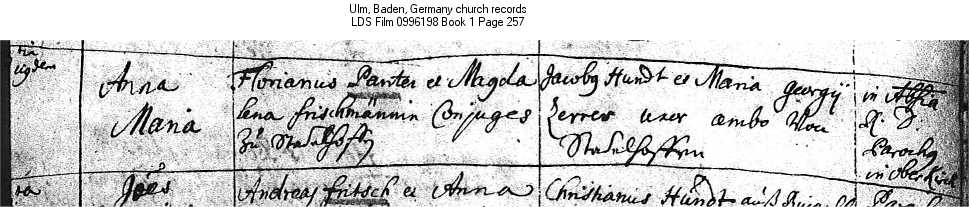 Ulm, Baden, Germany church records
LDS Film 0996198 Book 1 Page 257
Anna
Maria
Florianus Panter et Magda
lena frischmännin Conjuges
Zu Stadelhoffen
Jacobg Hundt et Maria georgij
Zerrer uxor ambo Von
Stadelhoffen
in
R. D.
Parochg
in Oberkirch
Joes
Andreas fritsch et Anna
Christianus Hundt auß